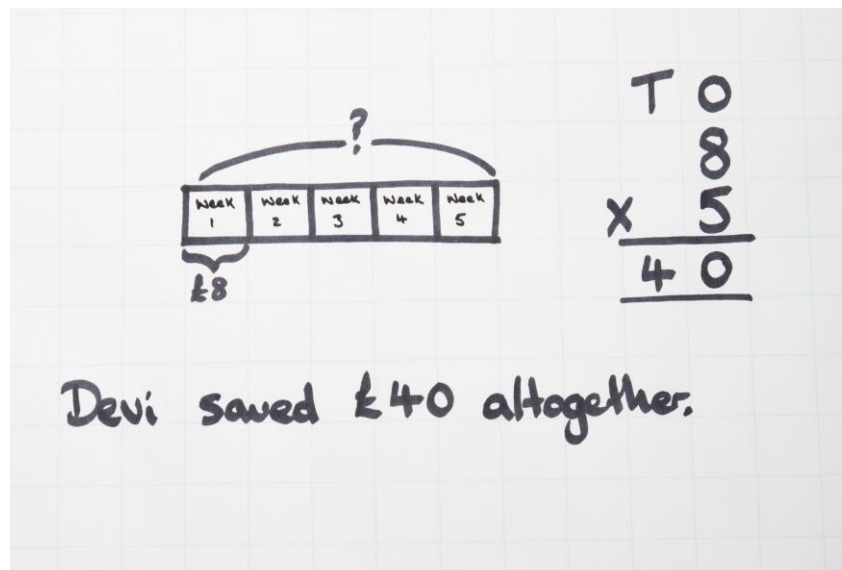 ?
Week 1
Week 2
Week 3
Week 4
Week 5
£8
T O
8
× 5
40
Devi saved £40 altogether.